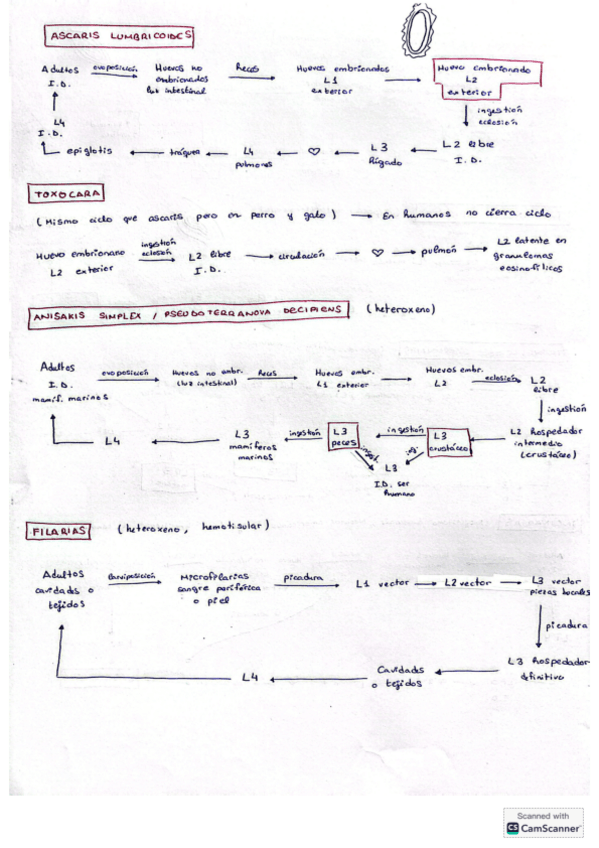 ASCARIS LUMBRICOIDES
Adultos I.D.
ovoposición
Huevos no embrionados
luz intestinal
Heces
Huevos embrionados
L1
exterior
Huevo embrionado
L2
exterior
ingestión
eclosión
L2 libre
I.D.
L3
Hígado
L4
pulmones
tráquea
epiglotis
L4
I.D.
TOXOCARA
(Mismo ciclo que ascaris pero en perro y gato) → En humanos no cierra ciclo
Huevo embrionano
L2 exterior
ingestión
eclosión
L2 libre
I.D.
circulación
pulmón
L2 latente en
granulomas
eosinofílicos
ANISAKIS SIMPLEX / PSEUDOTERRANOVA DECIPIENS (heteroxeno)
Adultos
I.D.
mamíf. marinos
ovoposición
Huevos no embr.
(luz intestinal)
Heces
Huevos embr.
L1 exterior
Huevos embr.
L2
eclosión
L2
libre
ingestión
L2 hospedador
intermedio
(crustáceo)
L3
crustáceo
ingestión
L3
peces
ingest.
ing.
L3
I.D. ser
humano
ingestión
L3
mamíferos
marinos
L4
FILARIAS (heteroxeno, hemotisular)
Adultos
cavidads o
tejidos
larviposición
Microfilarias
sangre periférica
o piel
picadura
L1 vector
L2 vector
L3 vector
piezas bucales
picadura
L3 hospedador
definitivo
Cavidads
o tejidos
L4
Scanned with
CS CamScanner